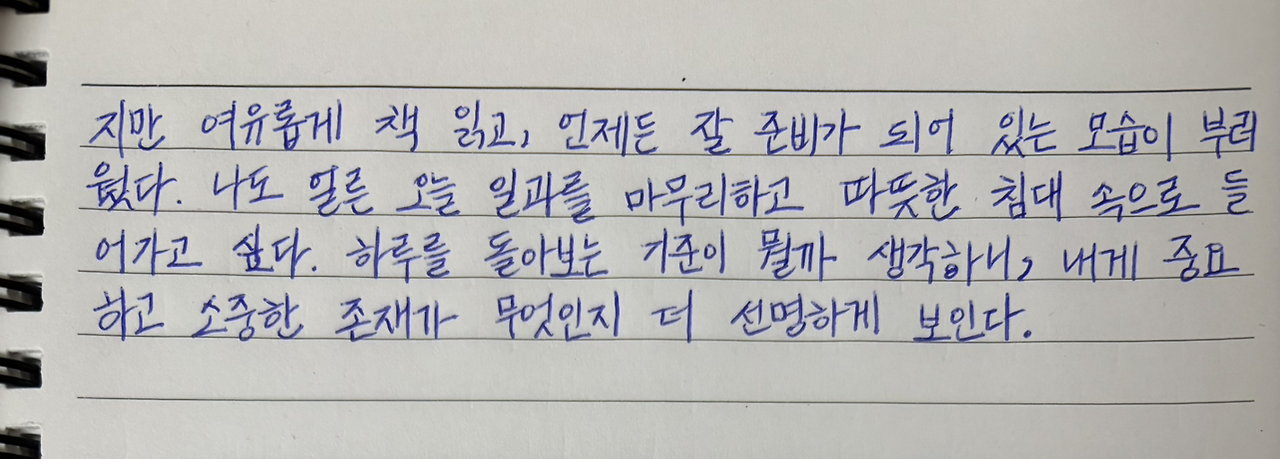 지만 여유롭게 책 읽고, 언제든 잘 준비가 되어 있는 모습이 부러
웠다. 나도 얼른 오늘 일과를 마무리하고 따뜻한 침대 속으로 들
어가고 싶다. 하루를 돌아보는 기준이 뭘까 생각하니, 내게 중요
하고 소중한 존재가 무엇인지 더 선명하게 보인다.